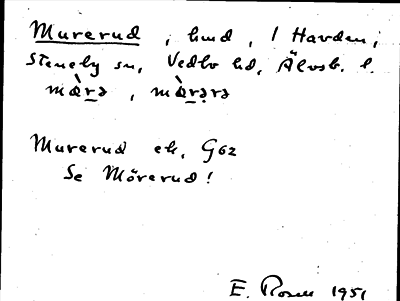 Murerud, hmd, i Havden,
Steneby sn, Vedbo hd, Älvsb. l.
mùrə, mùrərə
Murerud ek, G62
Se Mörerud!
E. Rosell 1951